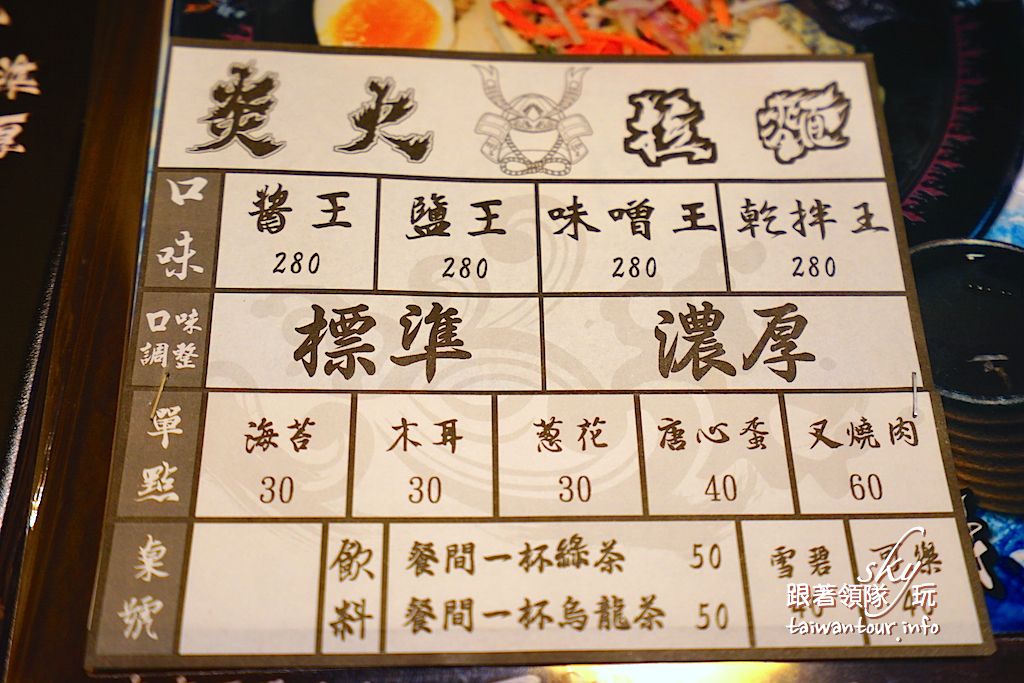 炎火拉麵
口味
醬王 鹽王 味噌王 乾拌王
280 280 280 280
口味調整
標準 濃厚
單點
海苔 木耳 蔥花 唐心蛋 叉燒肉
30 30 30 40 60
桌號
飲料
餐間一杯綠茶 50
餐間一杯烏龍茶 50
雪碧 可樂
40
sky
跟著領隊玩
taiwantour.info